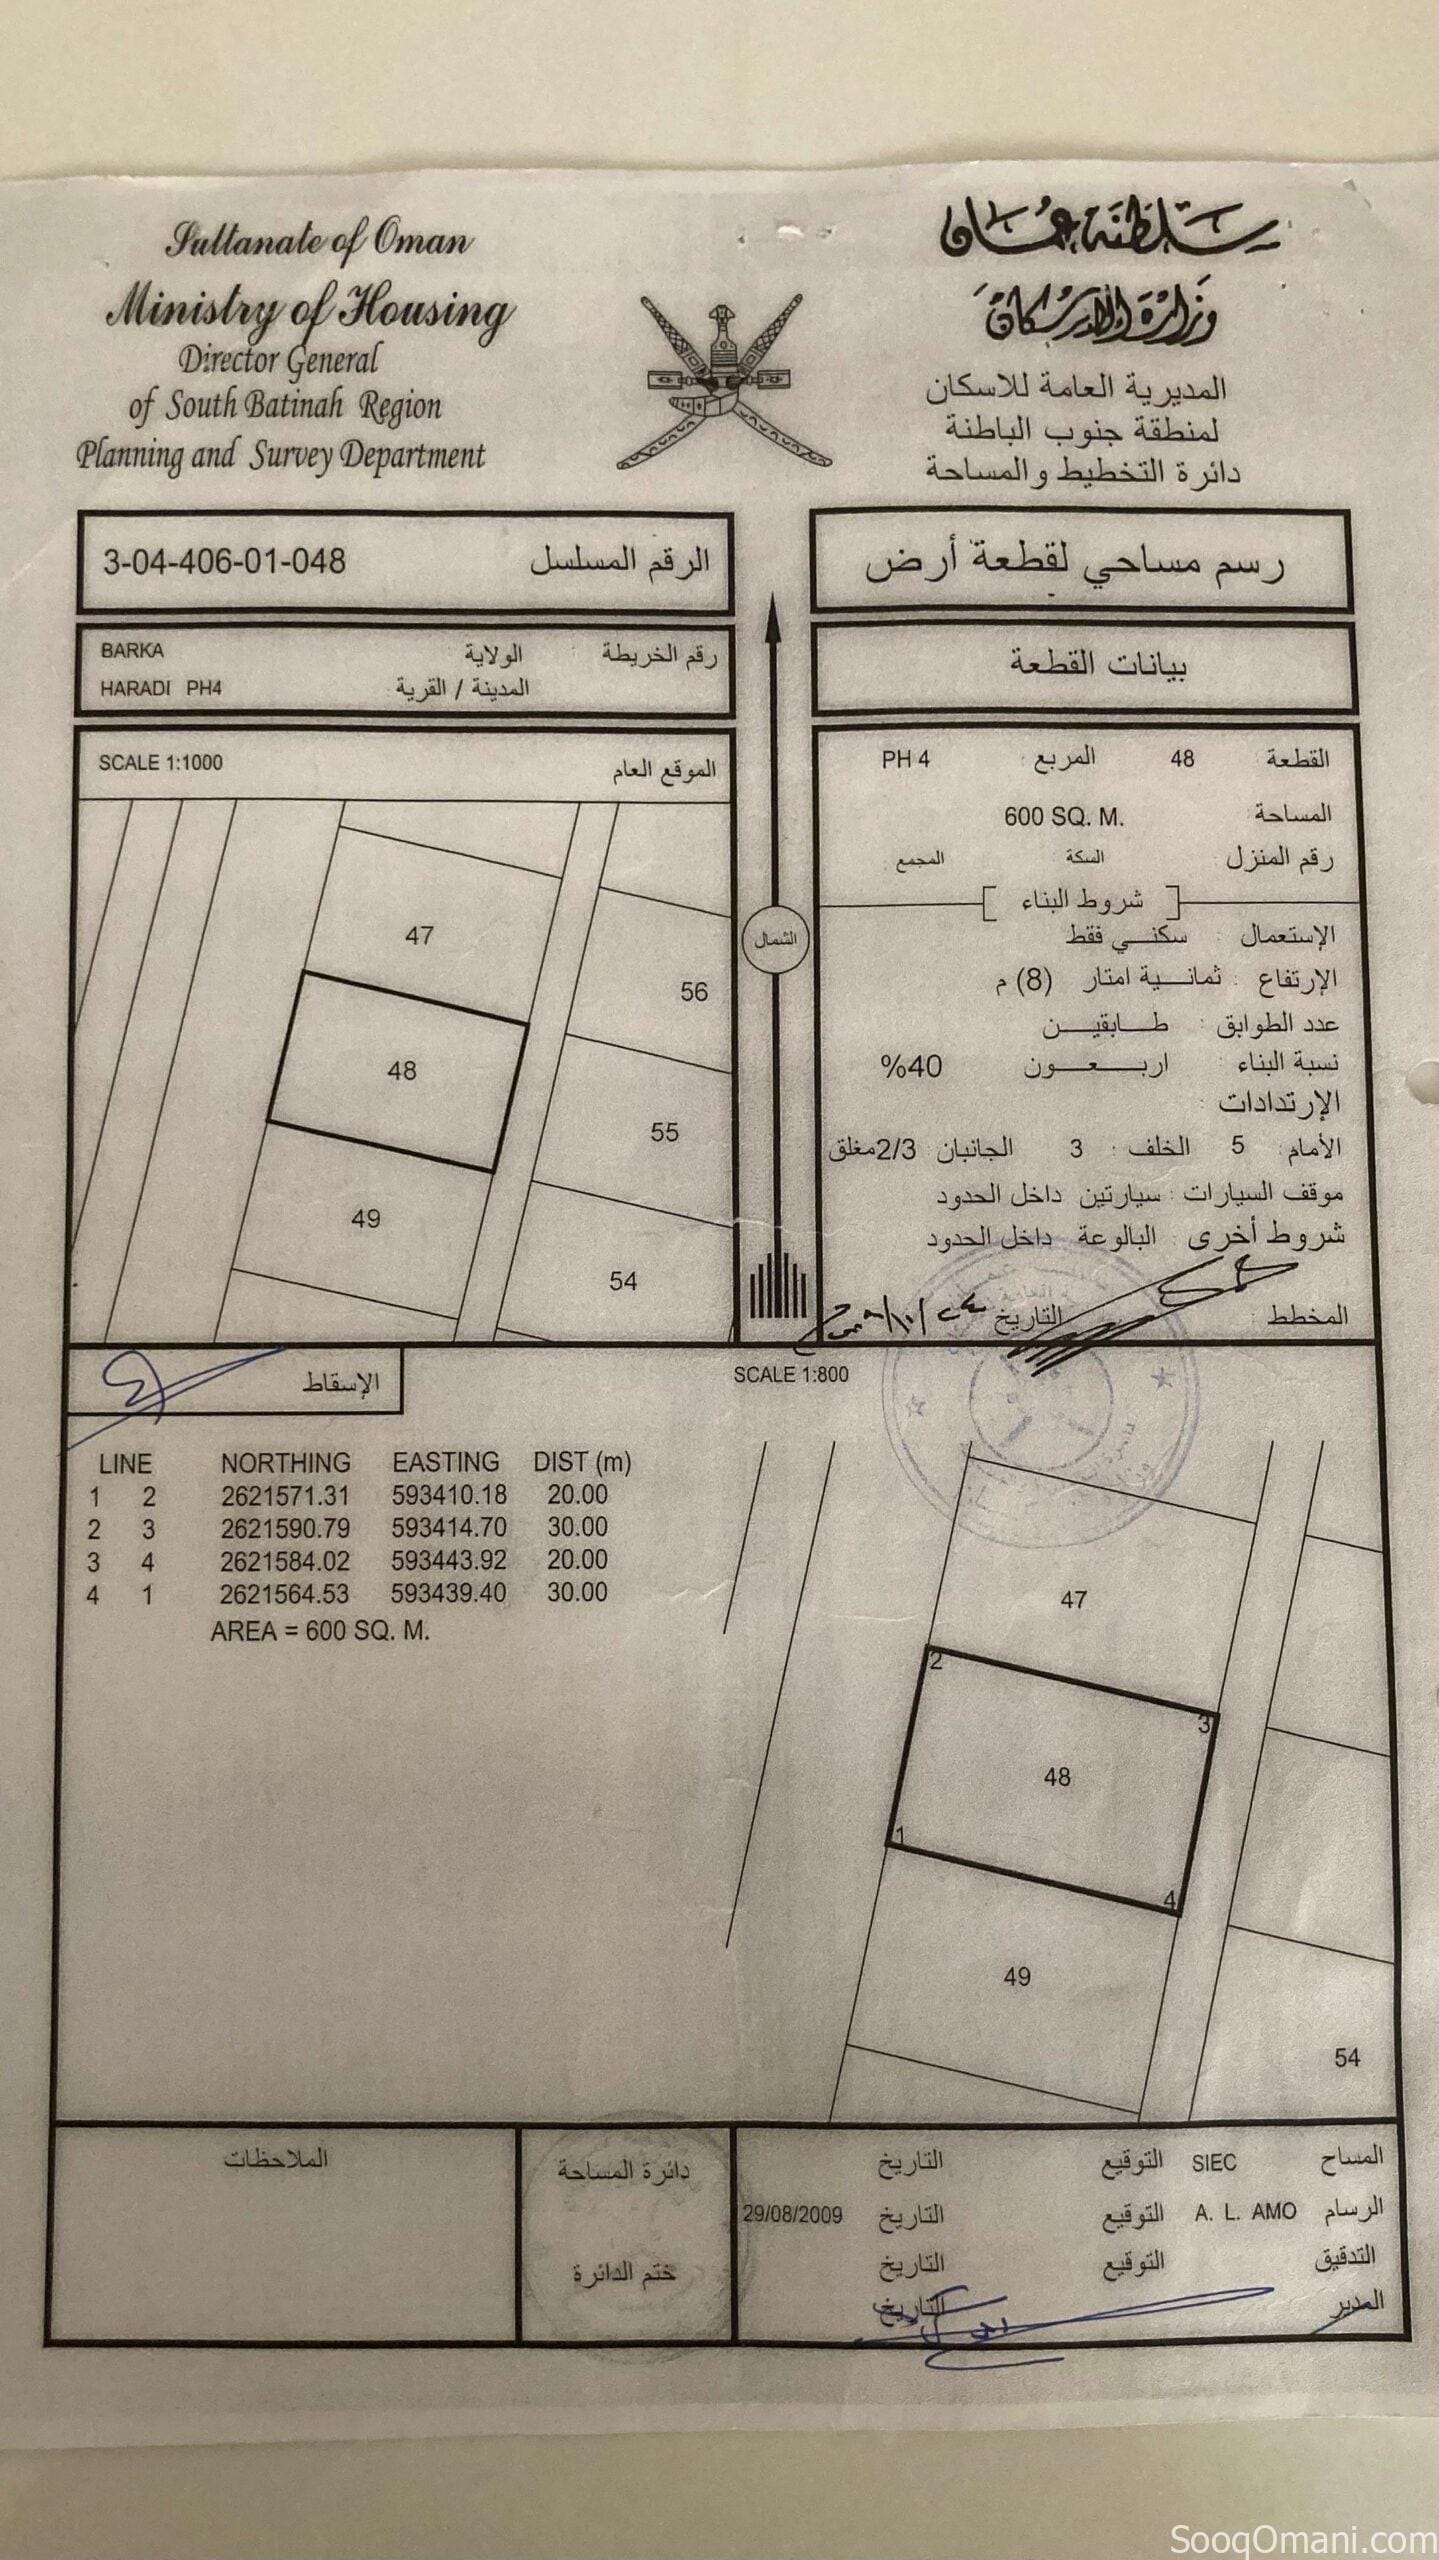 Sultanate of Oman
Ministry of Housing
Director General
of South Batinah Region
Planning and Survey Department
سلطنة عمان
وزارة الإسكان
المديرية العامة للاسكان
لمنطقة جنوب الباطنة
دائرة التخطيط والمساحة
رسم مساحي لقطعة أرض
الرقم المسلسل 3-04-406-01-048
رقم الخريطة الولاية BARKA
المدينة / القرية HARADI PH4
بيانات القطعة
الموقع العام SCALE 1:1000
47
48
49
56
55
54
الشمال
القطعة : 48 المربع : PH 4
المساحة : 600 SQ. M.
رقم المنزل : السكة المجمع
شروط البناء
الإستعمال : سكنــي فقط
الإرتفاع : ثمانــية امتار (8) م
عدد الطوابق : طــابقيــن
نسبة البناء : اربــعــون %40
الإرتدادات :
الأمام : 5 الخلف : 3 الجانبان 2/3مغلق
موقف السيارات : سيارتين داخل الحدود
شروط أخرى : البالوعة داخل الحدود
المخطط : التاريخ
الإسقاط
SCALE 1:800
LINE NORTHING EASTING DIST (m)
1 2 2621571.31 593410.18 20.00
2 3 2621590.79 593414.70 30.00
3 4 2621584.02 593443.92 20.00
4 1 2621564.53 593439.40 30.00
AREA = 600 SQ. M.
47
2
3
48
1
4
49
54
المساح SIEC التوقيع التاريخ
الرسام A. L. AMO التوقيع التاريخ 29/08/2009
التدقيق التوقيع التاريخ
المدير التاريخ
دائرة المساحة
ختم الدائرة
الملاحظات
SooqOmani.com